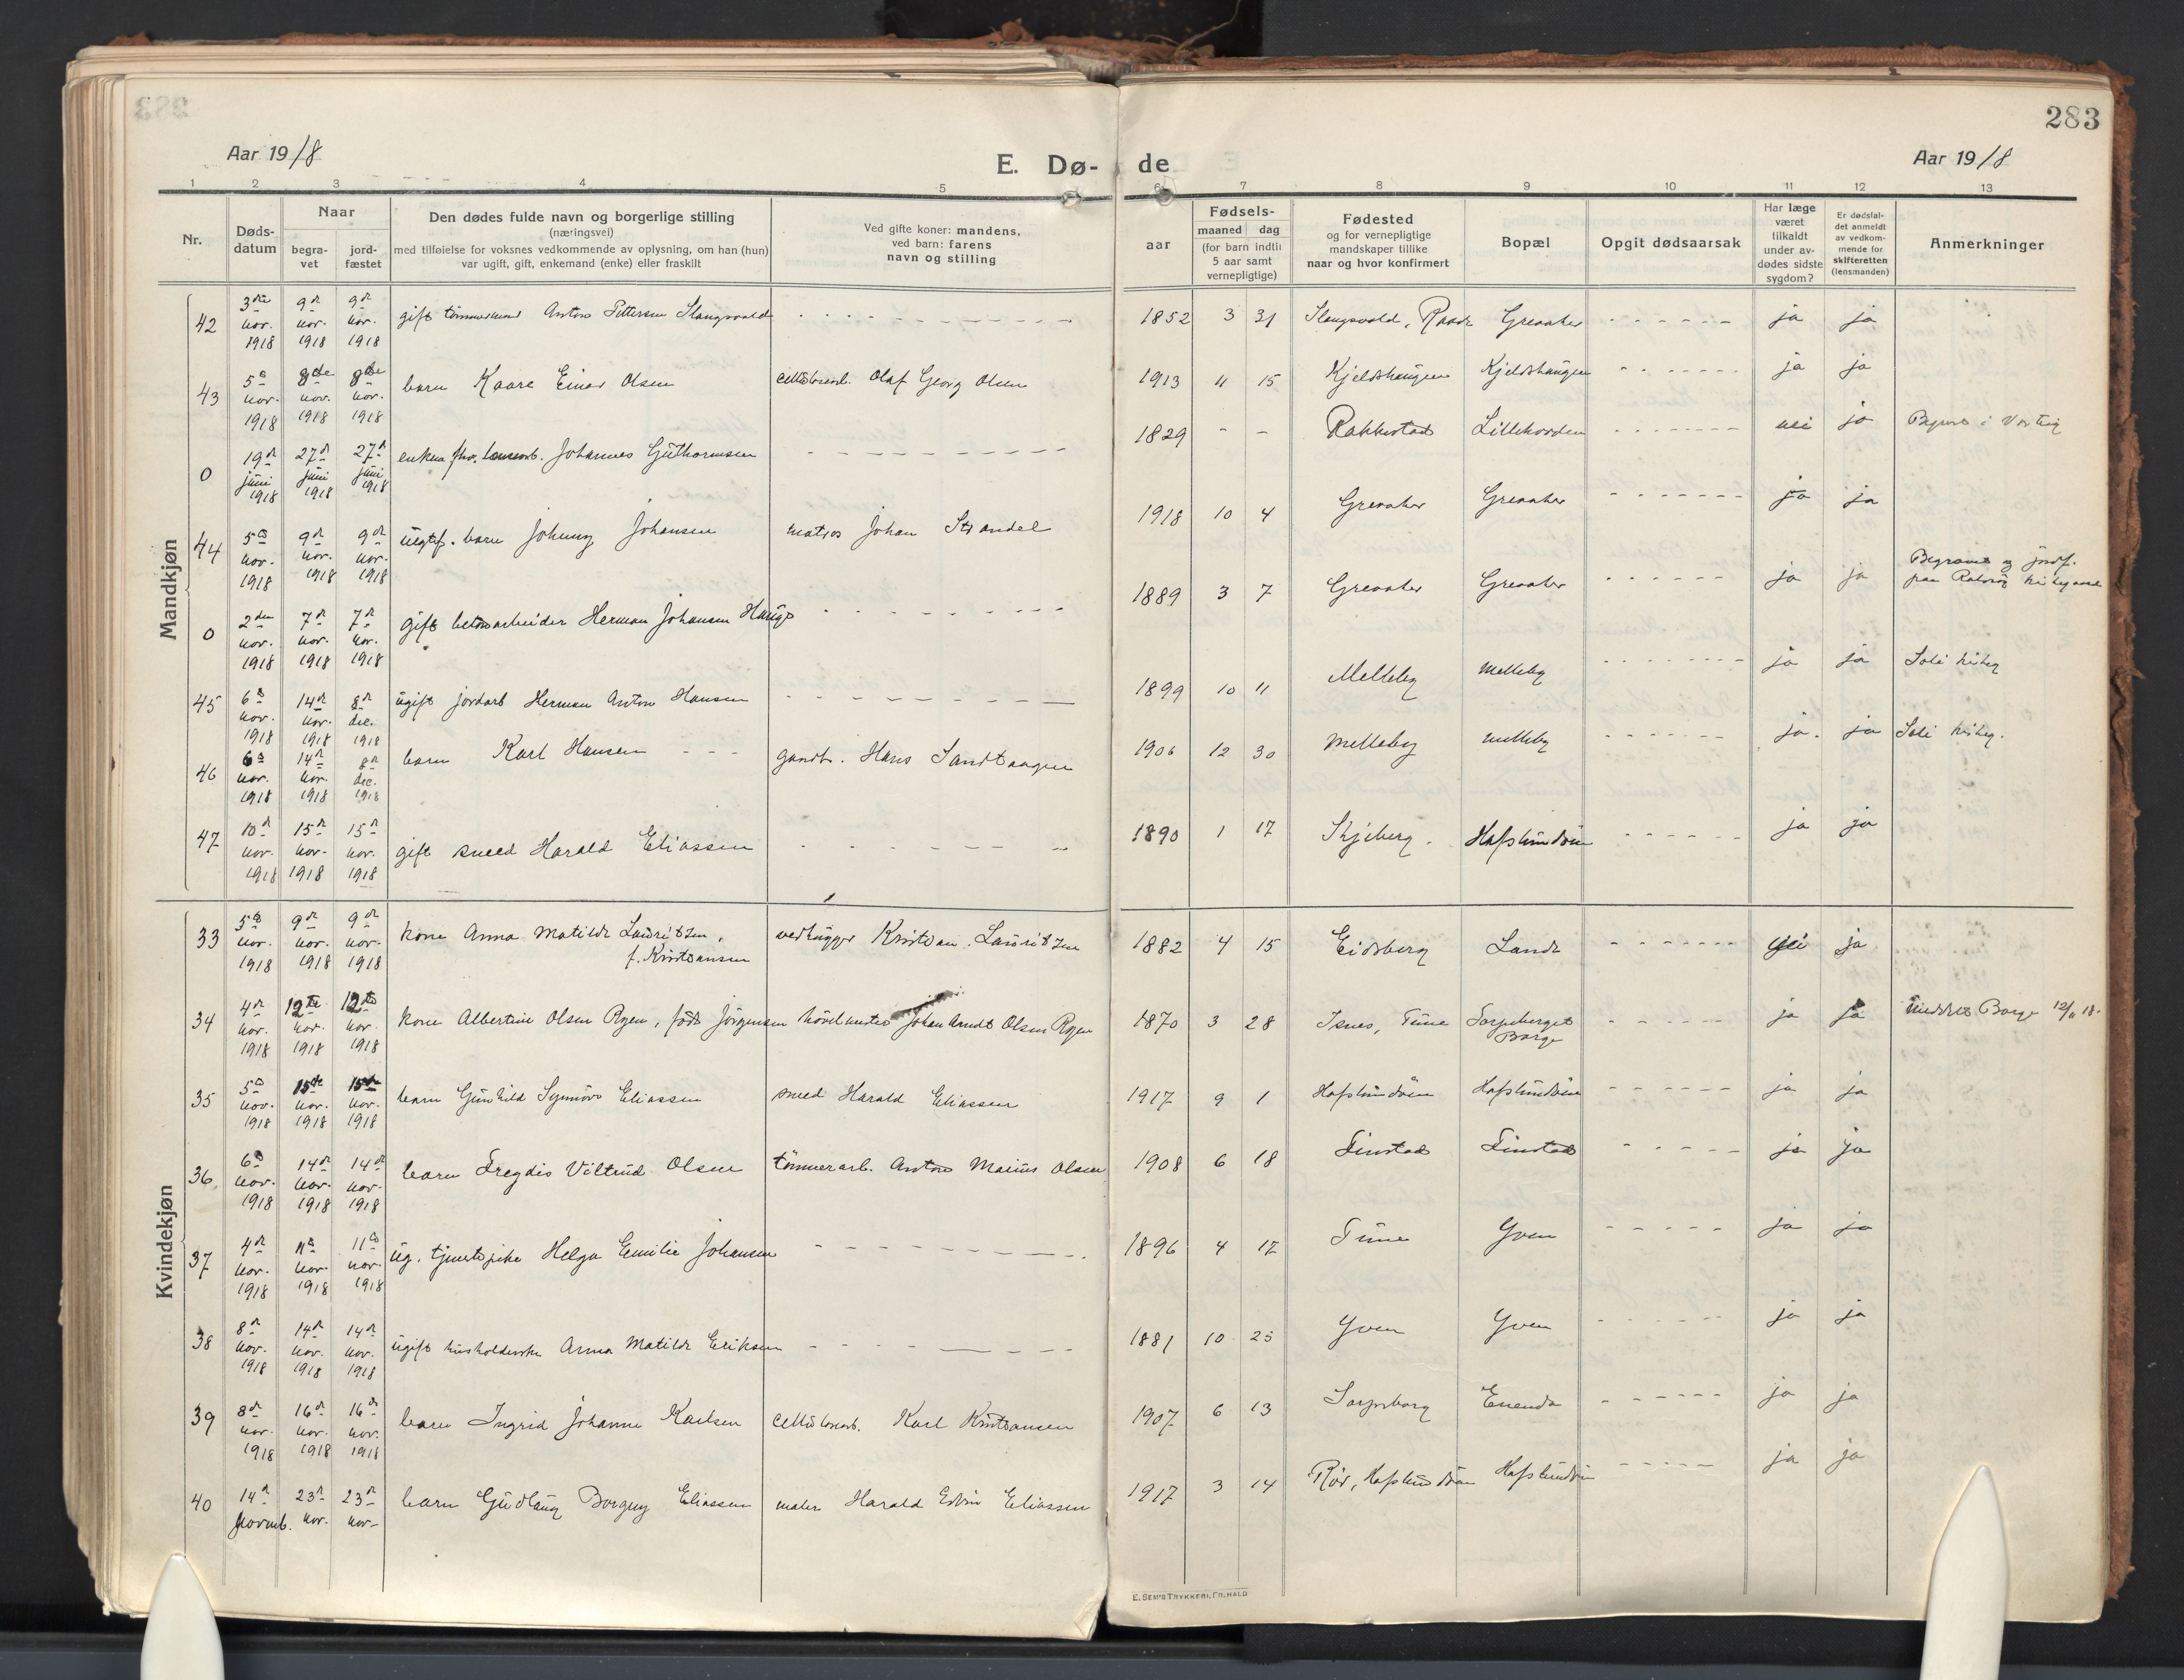 283
Aar 1918
E. Dø- de
Aar 1918
1 2 3 4 5 6 7 8 9 10 11 12 13
Nr.
Døds-
datum
Naar
begra-
vet
jord-
fæstet
Den dødes fulde navn og borgerlige stilling
(næringsvei)
med tilføielse for voksnes vedkommende av oplysning, om han (hun)
var ugift, gift, enkemand (enke) eller fraskilt
Ved gifte koner: mandens,
ved barn: farens
navn og stilling
aar
Fødsels-
maaned dag
(for barn indtil
5 aar samt
vernepligtige)
Fødested
og for vernepligtige
mandskaper tillike
naar og hvor konfirmert
Bopæl
Opgit dødsaarsak
Har læge
været
tilkaldt
under av-
dødes sidste
sygdom?
Er dødsfal-
det anmeldt
av vedkom-
mende for
skifteretten
(lensmanden)
Anmerkninger
Mandkjøn
42 3die nov. 1918 9de nov. 1918 9de nov. 1918 gift tømmermand Anton Pettersen Slangsvold 1852 3 31 Slangsvold, Raade Greaaker ja ja
43 5te nov. 1918 8de nov. 1918 8de nov. 1918 barn Kaare Einar Olsen cellulosearb. Olaf Georg Olsen 1913 11 15 Kjeldshaugen Kjeldshaugen ja ja
0 19de juni 1918 27de juni 1918 27de juni 1918 enkem. fhv. Johannes Guthormsen 1829 - - Rakkestad nei ja
44 5te nov. 1918 9de nov. 1918 9de nov. 1918 uegtef. barn Johnny Johansen matros Johan Strandel 1918 10 4 Greaaker Greaaker ja ja
0 2den nov. 1918 7de nov. 1918 7de nov. 1918 gift betonarbeider Herman Johansen Hauge 1889 3 7 Greaaker Greaaker ja ja Begravet og jordf.
paa
45 6te nov. 1918 14de nov. 1918 8de dec. 1918 ugift jordarb Herman Anton Hansen 1899 10 11 Melleby Melleby ja ja Soli
46 6te nov. 1918 14de nov. 1918 8de dec. 1918 barn Karl Hansen gaardb. Hans Sandtangen 1906 12 30 Melleby Melleby ja. ja Soli
47 10de nov. 1918 15de nov. 1918 15de nov. 1918 gift smed Harald Eliassen 1890 1 17 Skjeberg. Hafslundsøen ja ja
Kvindekjøn
33 5te nov. 1918 9de nov. 1918 9de nov. 1918 kone Anna Matilde Lauritzen, vedhugger Kristian Lauritzen 1882 4 15 Eidsberg Lande nei ja
f. Kristiansen
34 4de nov. 1918 12te nov. 1918 12te nov. 1918 kone Albertine Olsen Ryen, født Jørgensen høvelmester Johan Arndt Olsen Ryen 1870 3 28 Isnes, Tune Sarpsberget ja ja Borge 12/11 18.
Borge
35 5te nov. 1918 15de nov. 1918 15de nov. 1918 barn Gunhild Synnøve Eliassen smed Harald Eliassen 1917 9 1 Hafslundsøen Hafslundsøen ja ja
36. 6te nov. 1918 14de nov. 1918 14de nov. 1918 barn Fregdis Viltrud Olsen tømmerarb. Anton Marius Olsen 1908 6 18 Finstad Finstad ja ja
37 4de nov. 1918 11te nov. 1918 11te nov. 1918 ug. tjenestepike Helga Emilie Johansen 1896 4 17 Tune Yven ja ja
38 8de nov. 1918 14de nov. 1918 14de nov. 1918 ugift husholderske Anna Matilde Eriksen 1881 10 25 Yven Yven ja ja
39 8de nov. 1918 16de nov. 1918 16de nov. 1918 barn Ingrid Johanne Karlsen cellulosearb. Karl Kristiansen 1907 6 13 Sarpsborg Enenda ja ja
40 14de Novemb. 23de nov. 23de nov- barn Gudlaug Borgny Eliassen maler Harald Edvin Eliassen 1917 3 14 Rør, Hafslundsøen Hafslundsøen ja ja
E. SEM'S TRYKKERI, FR.HALD